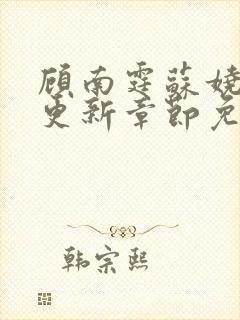 顾南霆苏娆
更新章节免
韩宗熙